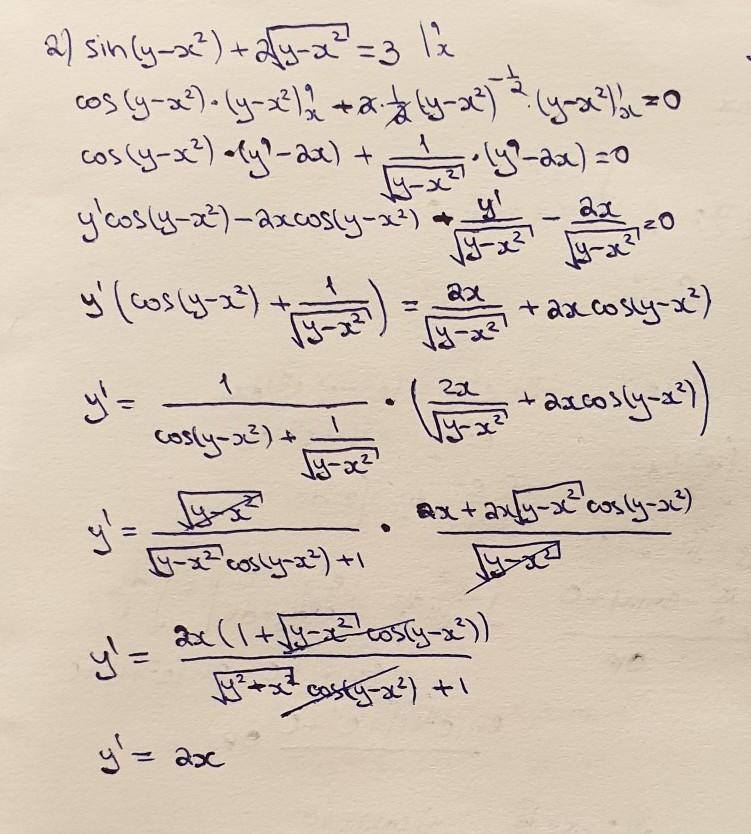 2) sin(y-x²) + 2√(y-x²) = 3 |'ₓ
cos(y-x²)·(y-x²)'ₓ + 2·1/2(y-x²)^(-1/2)·(y-x²)'ₓ = 0
cos(y-x²)·(y'-2x) + 1/√(y-x²)·(y'-2x) = 0
y'cos(y-x²) - 2xcos(y-x²) + y'/√(y-x²) - 2x/√(y-x²) = 0
y'(cos(y-x²) + 1/√(y-x²)) = 2x/√(y-x²) + 2xcos(y-x²)
y' = 1/(cos(y-x²) + 1/√(y-x²)) · (2x/√(y-x²) + 2xcos(y-x²))
y' = √(y-x²)/(√(y-x²)cos(y-x²)+1) · (2x+2x√(y-x²)cos(y-x²))/√(y-x²)
y' = 2x(1+√(y-x²)cos(y-x²))/(√(y²+x²)cos(y-x²)+1)
y' = 2x